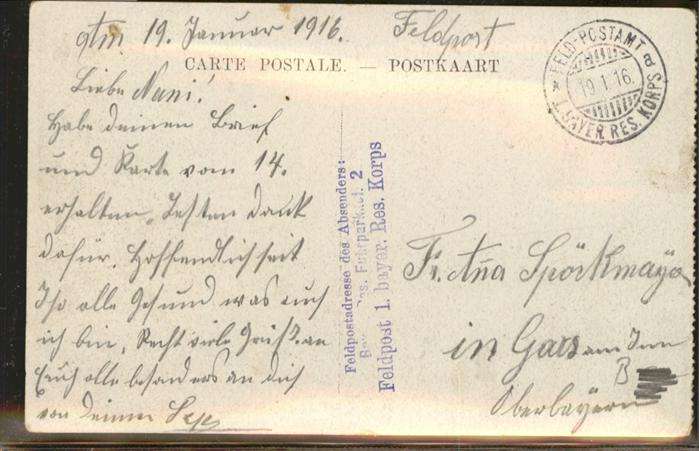 Am 19. Januar 1916. Feldpost
CARTE POSTALE. — POSTKAART
FELD-POSTAMT d
19.1.16.
* 1. BAYER RES. KORPS
Liebe Nani!
Habe deinen Brief
und Karte vom 14.
erhalten, besten Dank
dafür, Hoffendlich seit
Ihr alle Gesund was auch
ich bin, Recht viele Grüße an
Euch alle besonders an dich
von deinem Sepp
Feldpostadresse des Absenders:
Res. Fuhrpark 2
Feldpost 1. bayer. Res. Korps
Fr. Anna Spörkmayr
in Gars am Inn
B
Oberbayern